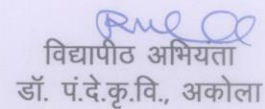 विद्यापीठ अभियता
डॉ. पं.दे.कृ.वि., अकोला